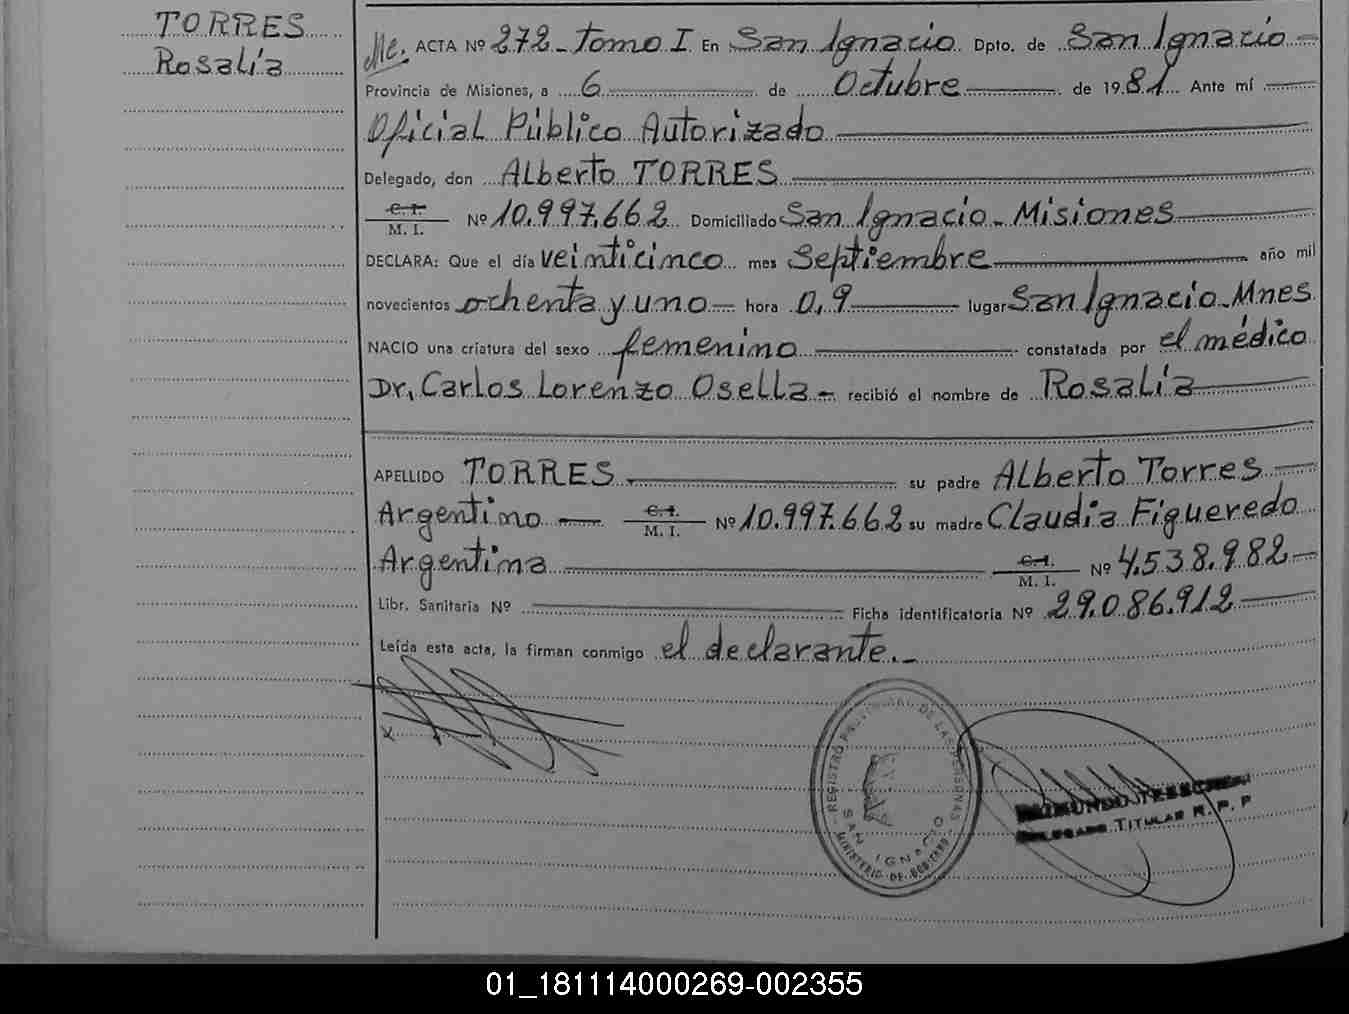 TORRES
Rosalía
ACTA Nº 272 - Tomo I En San Ignacio Dpto. de San Ignacio -
Provincia de Misiones, a 6 de Octubre de 1981 Ante mí
Oficial Público Autorizado
Delegado, don Alberto TORRES
C. I.
M. I. Nº 10.997.662 Domiciliado San Ignacio - Misiones
DECLARA: Que el día veinticinco mes Septiembre año mil
novecientos ochenta y uno - hora 0,9 lugar San Ignacio - Mnes
NACIO una criatura del sexo femenino constatada por el médico
Dr, Carlos Lorenzo Osella - recibió el nombre de Rosalía
APELLIDO TORRES su padre Alberto Torres
Argentino C.I. M. I. Nº 10.997.662 su madre Claudia Figueredo
Argentina C.I. M. I. Nº 4.538.982 -
Libr. Sanitaria Nº Ficha identificatoria Nº 29.086.912
Leída esta acta, la firman conmigo el declarante. -
x
REGISTRO PROVINCIAL DE LAS PERSONAS
SAN IGNACIO
MINISTERIO DE GOBIERNO
RAIMUNDO
DELEGADO TITULAR R. P. P
01_181114000269-002355